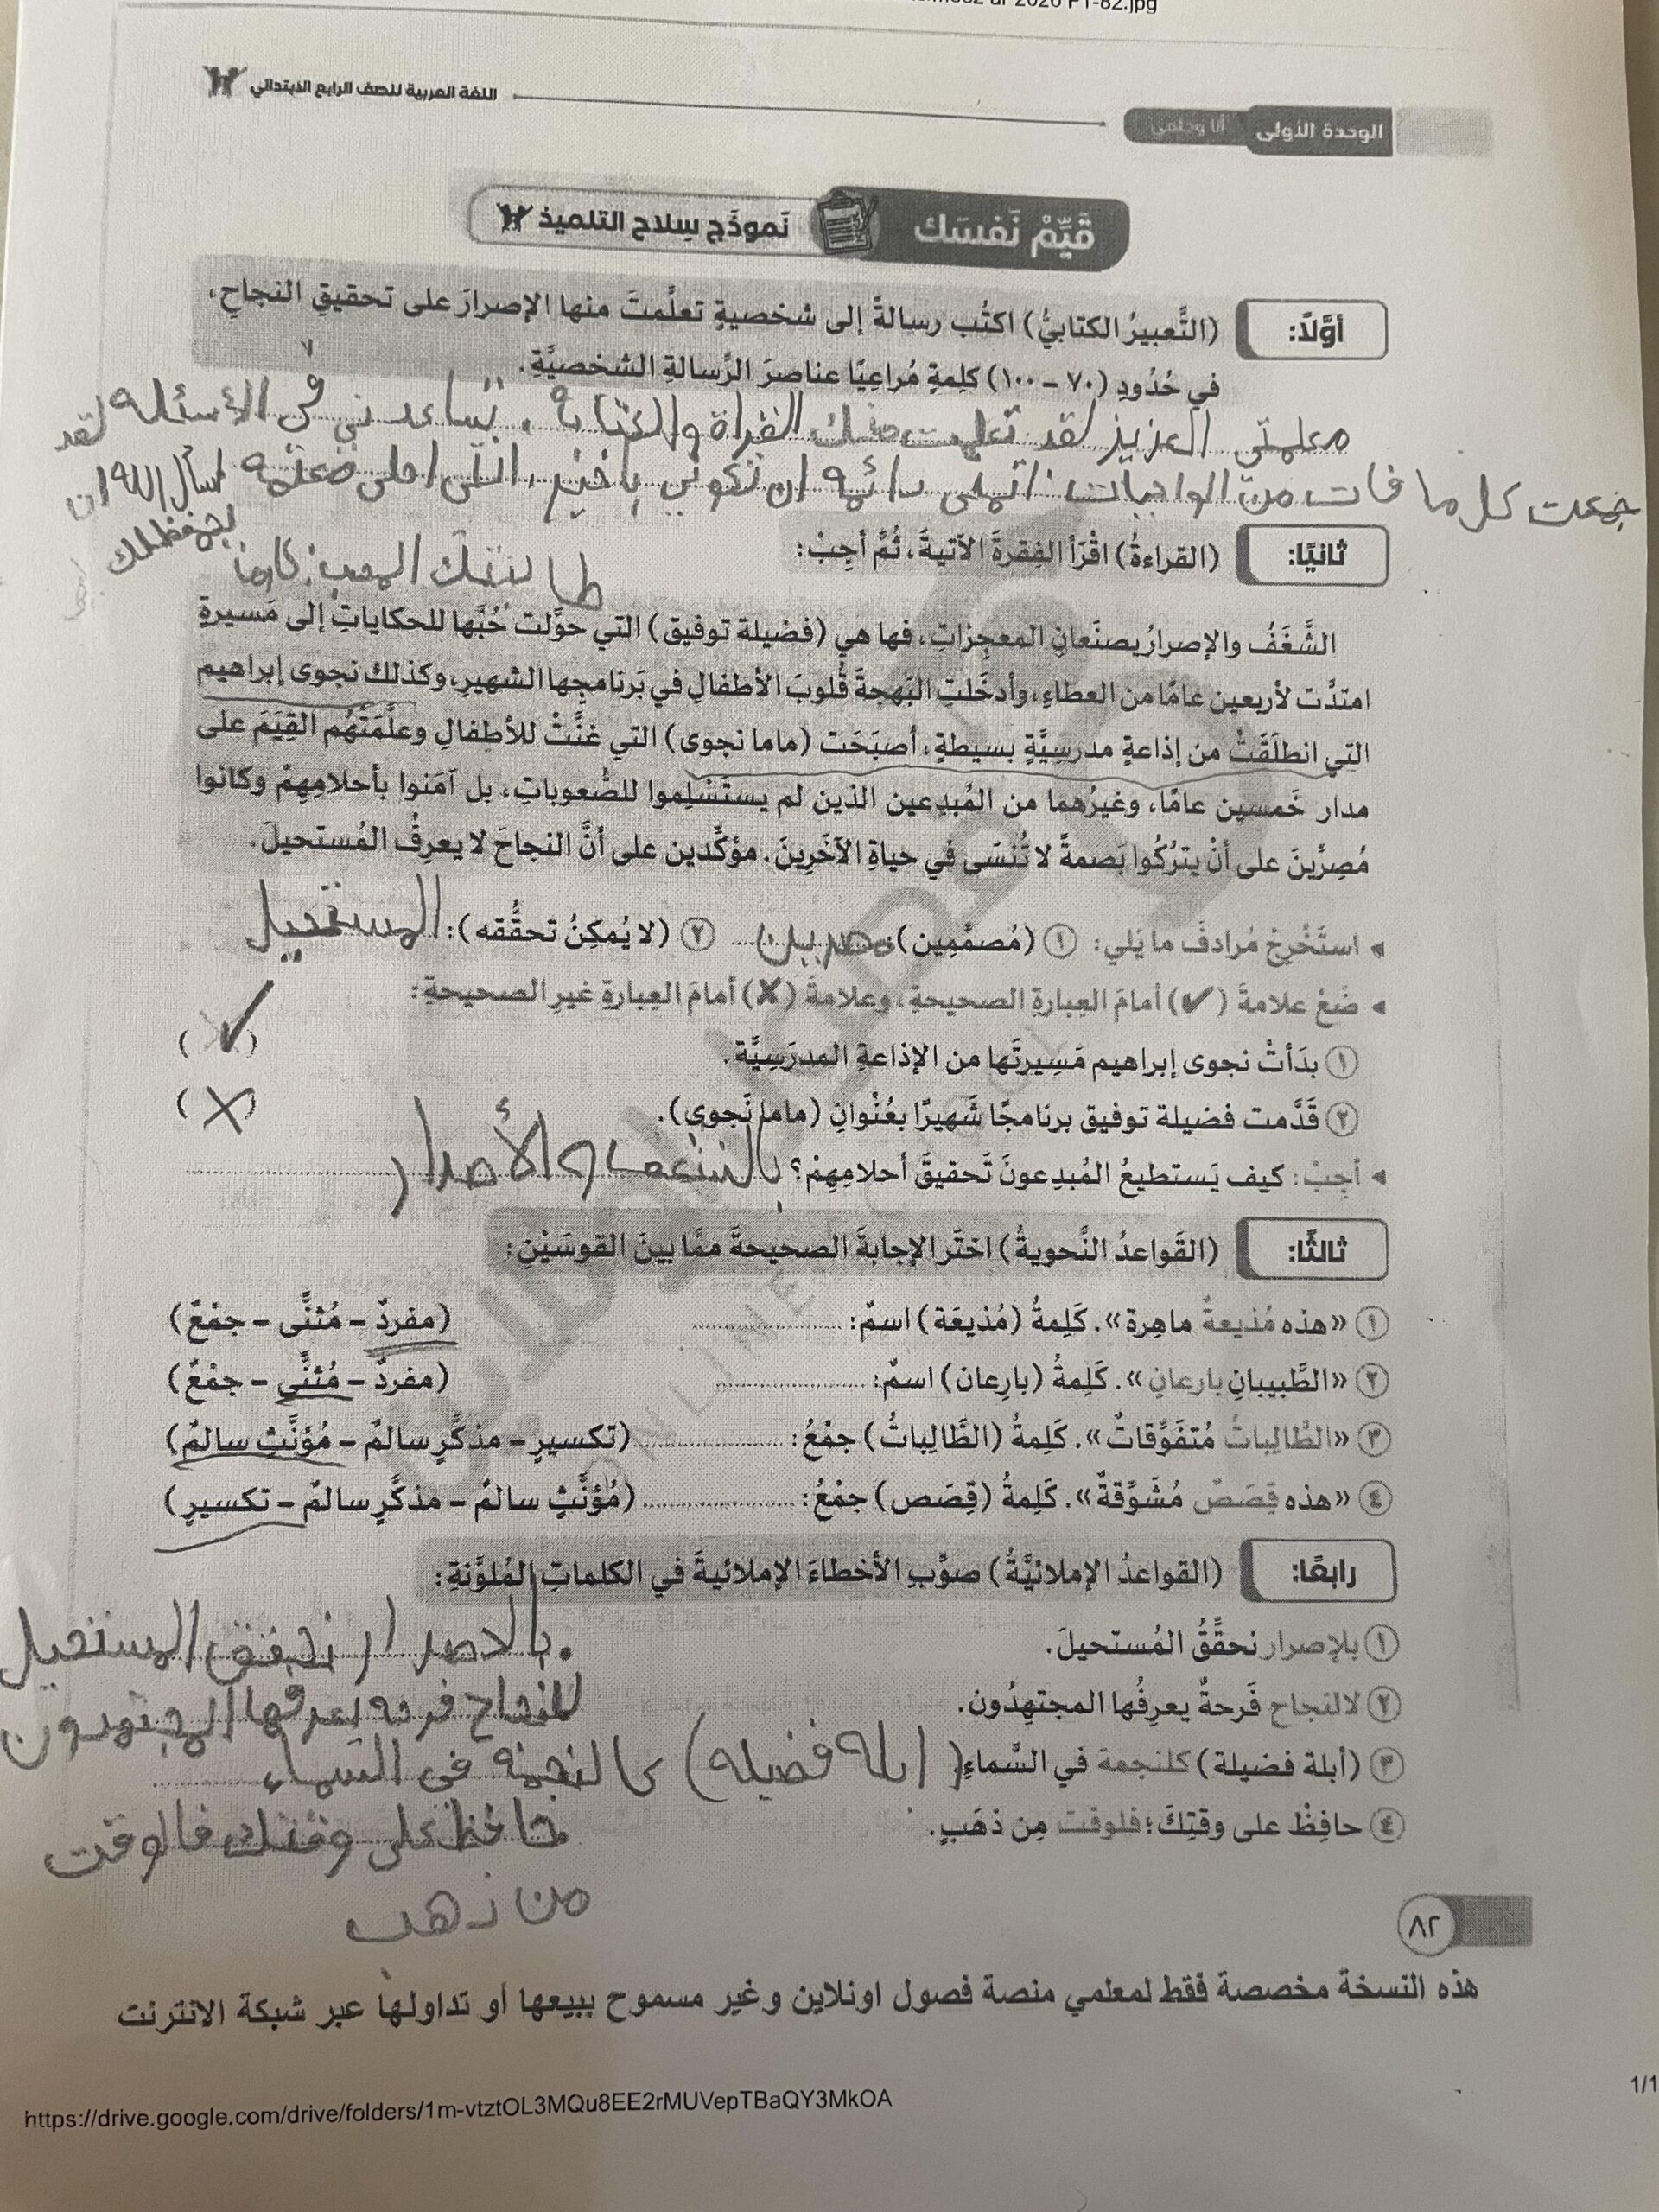 اللغة العربية للصف الرابع الابتدائي
الوحدة الأولى أنا وحلمي
قَيِّمْ نَفسَك نَموذَج سِلاح التلميذ
أوَّلًا: (التَّعبيرُ الكتابيُّ) اكتُب رسالةً إلى شخصيةٍ تعلَّمتَ منها الإصرارَ على تحقيقِ النجاحِ،
في حُدُودِ (٧٠ – ١٠٠) كلِمةٍ مُراعِيًا عناصرَ الرِّسالةِ الشخصيَّةِ.
معلمتي العزيز لقد تعلمت منك القراة والكتابة . تساعدني في الأسئله لقد
جمعت كل ما فات من الواجبات اتمنى دائمه ان تكوني باخير، انتى احلى معلمه اسأل الله ان
يحفظك
طالبتك المحب:
ثانيًا: (القراءةُ) اقْرَأ الفِقرةَ الآتيةَ، ثُمَّ أجِبْ:
الشَّغَفُ والإصرارُ يصنَعانِ المعجِزاتِ، فها هي (فضيلة توفيق) التي حوَّلت حُبَّها للحكاياتِ إلى مَسيرةٍ
امتدَّت لأربعين عامًا من العطاءِ، وأدخَلتِ البَهجةَ قُلوبَ الأطفالِ في بَرنامجِها الشهيرِ، وكذلك نجوى إبراهيم
التي انطلَقَتْ من إذاعةٍ مدرسِيَّةٍ بسيطةٍ، أصبَحَت (ماما نجوى) التي غنَّتْ للأطفالِ وعلَّمَتْهُم القِيَمَ على
مدار خَمسين عامًا، وغيرُهما من المُبدِعين الذين لم يستَسْلِموا للصُّعوباتِ، بل آمَنوا بأحلامِهِمْ وكانوا
مُصِرِّينَ على أنْ يترُكُوا بَصمةً لا تُنسَى في حياةِ الآخَرِينَ. مؤكِّدين على أنَّ النجاحَ لا يعرِفُ المُستحيلَ.
◂ استَخْرِجْ مُرادفَ ما يَلي: ١ (مُصمِّمِين): مصريين ٢ (لا يُمكِنُ تحقُّقه): المستحيل
◂ ضَعْ علامةَ (✓) أمامَ العِبارةِ الصحيحةِ، وعلامةَ (✗) أمامَ العِبارةِ غيرِ الصحيحةِ:
١ بدَأتْ نجوى إبراهيم مَسِيرتَها من الإذاعةِ المدرَسِيَّة. (✓)
٢ قَدَّمت فضيلة توفيق برنامجًا شَهيرًا بعُنْوانِ (ماما نَجوى). (✗)
◂ أجِبْ: كيف يَستطيعُ المُبدِعونَ تَحقيقَ أحلامِهِمْ؟ بالشغف والأصرار
ثالثًا: (القَواعدُ النَّحويةُ) اختَر الإجابةَ الصحيحةَ ممَّا بينَ القوسَيْنِ:
١ «هذه مُذيعةٌ ماهِرة». كَلِمةُ (مُذيعَة) اسمٌ: (مفردٌ – مُثنًّى – جمْعٌ)
٢ «الطَّبيبانِ بارعانِ». كَلِمةُ (بارِعان) اسمٌ: (مفردٌ – مُثنًّى – جمْعٌ)
٣ «الطَّالِباتُ مُتفَوِّقاتٌ». كَلِمةُ (الطَّالِباتُ) جمْعُ: (تكسيرٍ – مذكَّرٍ سالمٌ – مُؤنَّثٍ سالمٌ)
٤ «هذه قِصَصٌ مُشَوِّقةٌ». كَلِمةُ (قِصَص) جمْعُ: (مُؤنَّثٍ سالمٌ – مذكَّرٍ سالمٌ – تكسيرٍ)
رابعًا: (القواعدُ الإملائيَّةُ) صوِّبِ الأخطاءَ الإملائيةَ في الكلماتِ المُلوَّنةِ:
١ بلإصرار نحقِّقُ المُستحيلَ. بالاصرار نحقق المستحيل
٢ لالنجاح فَرحةٌ يعرِفُها المجتهِدُون. للنجاح فرحه يعرفها المجتهدون
٣ (أبلة فضيلة) كلنجمة في السَّماءِ. (ابله فضيله) كالنجمة في السماء
٤ حافِظْ على وقتِكَ؛ فلوقت مِن ذهَبٍ. حافظ على وقتك فالوقت
من ذهب
٨٢
هذه النسخة مخصصة فقط لمعلمي منصة فصول اونلاين وغير مسموح ببيعها أو تداولها عبر شبكة الانترنت
1/1
https://drive.google.com/drive/folders/1m-vtztOL3MQu8EE2rMUVepTBaQY3MkOA